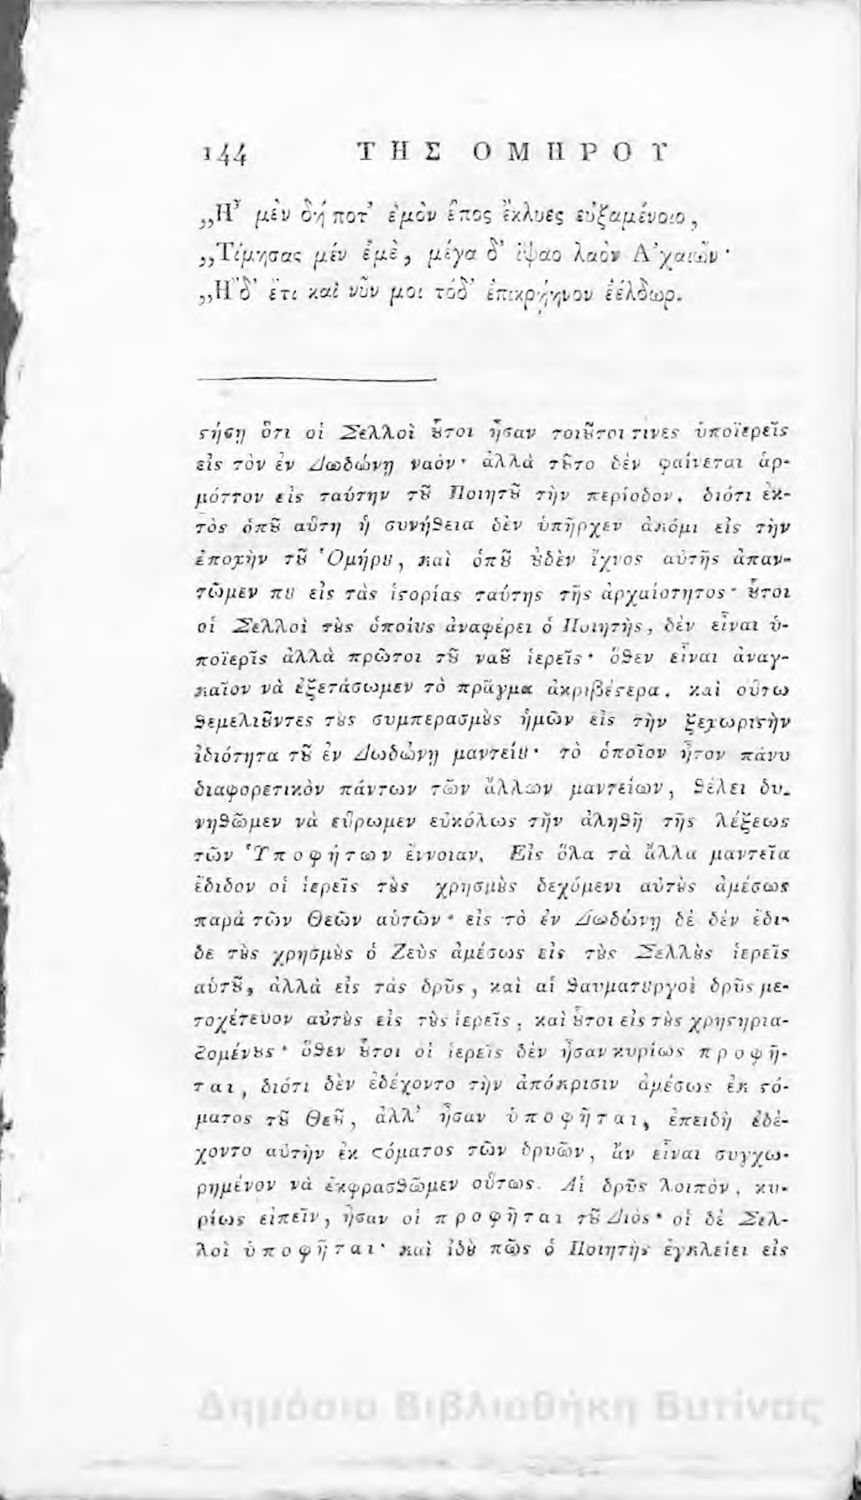 144 ΤΗΣ ΟΜΗΡΟΥ
„Η᾽ μὲν δή ποτ᾽ ἐμὸν ἔπος ἔκλυες εὐξαμένοιο,
„Τίμησας μέν ἐμὲ, μέγα δ᾽ ἴψαο λαὸν Α᾽χαιῶν·
„Η῎δ᾽ ἔτι καὶ νῦν μοι τόδ᾽ ἐπικρήηνον ἐέλδωρ.
ϛήσῃ ὅτι οἱ Σελλοὶ ȣ̃τοι ἦσαν τοιȣ̃τοι τινες ὑποϊερεῖς
εἰς τὸν ἐν Δωδώνῃ ναόν· ἀλλὰ τȣ̃το δέν φαίνεται ἁρ-
μόττον εἰς ταύτην τȣ̃ Ποιητȣ̃ τὴν περίοδον, διότι ἐκ-
τὸς ὁπȣ̃ αὕτη ἡ συνήθεια δὲν ὑπῆρχεν ἀκόμι εἰς τὴν
ἐποχὴν τȣ̃ Ὁμήρȣ, καὶ ὁπȣ̃ ȣ̓δὲν ἴχνος αὐτῆς ἀπαν-
τῶμεν πȣ εἰς τὰς ἱϛορίας ταύτης τῆς ἀρχαιότητος· ȣ̃τοι
οἱ Σελλοὶ τȣ̀ς ὁποίȣς ἀναφέρει ὁ Ποιητὴς, δὲν εἶναι ὑ-
ποϊερῖς ἀλλὰ πρῶτοι τȣ̃ ναȣ̃ ἱερεῖς· ὅθεν εἶναι ἀναγ-
καῖον νὰ ἐξετάσωμεν τὸ πρᾶγμα ἀκριβέϛερα, καὶ οὕτω
θεμελιȣ̃ντες τȣ̀ς συμπερασμȣ̀ς ἡμῶν εἰς τὴν ξεχωριϛὴν
ἰδιότητα τȣ̃ ἐν Δωδώνῃ μαντείȣ· τὸ ὁποῖον ἦτον πάνυ
διαφορετικὸν πάντων τῶν ἄλλων μαντείων, θέλει δυ-
νηθῶμεν νὰ εὕρωμεν εὐκόλως τὴν ἀληθῆ τῆς λέξεως
τῶν Ὑποφήτων ἔννοιαν. Εἰς ὅλα τὰ ἄλλα μαντεῖα
ἔδιδον οἱ ἱερεῖς τȣ̀ς χρησμȣ̀ς δεχόμενι αὐτȣ̀ς ἀμέσως
παρὰ τῶν Θεῶν αὐτῶν· εἰς τὸ ἐν Δωδώνῃ δὲ δέν ἔδι-
δε τȣ̀ς χρησμȣ̀ς ὁ Ζεὺς ἀμέσως εἰς τȣ̀ς Σελλȣ̀ς ἱερεῖς
αὑτȣ̃, ἀλλὰ εἰς τὰς δρῦς, καὶ αἱ θαυματȣργοὶ δρῦς με-
τοχέτευον αὐτȣ̀ς εἰς τȣ̀ς ἱερεῖς, καὶ ȣ̃τοι εἰς τȣ̀ς χρηϛηρια-
ζομένȣς· ὅθεν ȣ̃τοι οἱ ἱερεῖς δὲν ἦσαν κυρίως προφῆ-
ται, διότι δὲν ἐδέχοντο τὴν ἀπόκρισιν ἀμέσως ἐκ ϛό-
ματος τȣ̃ Θεȣ̃, ἀλλ᾽ ἦσαν ὑποφῆται, ἐπειδὴ ἐδέ-
χοντο αὐτὴν ἐκ ϛόματος τῶν δρυῶν, ἄν εἶναι συγχω-
ρημένον νὰ ἐκφρασθῶμεν οὕτως. Αἱ δρῦς λοιπὸν, κυ-
ρίως εἰπεῖν, ἦσαν οἱ προφῆται τȣ̃ Διὸς· οἱ δὲ Σελ-
λοὶ ὑποφῆται· καὶ ἰδȣ̀ πῶς ὁ Ποιητὴς ἐγκλείει εἰς
Δημόσια Βιβλιοθήκη Βυτίνας